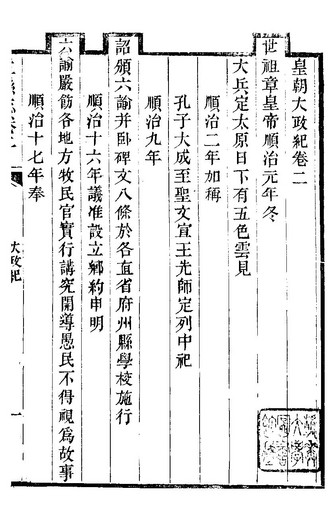 皇朝大政紀卷二
世祖章皇帝順治元年冬
大兵定太原日下有五色雲見
順治二年加稱
孔子大成至聖文宣王先師定列中祀
順治九年
詔頒六諭并卧碑文八條於各直省府州縣學校施行
順治十六年議准設立鄉約申明
六諭嚴飭各地方牧民官實行講究開導愚民不得視爲故事
順治十七年奉
大政紀
一